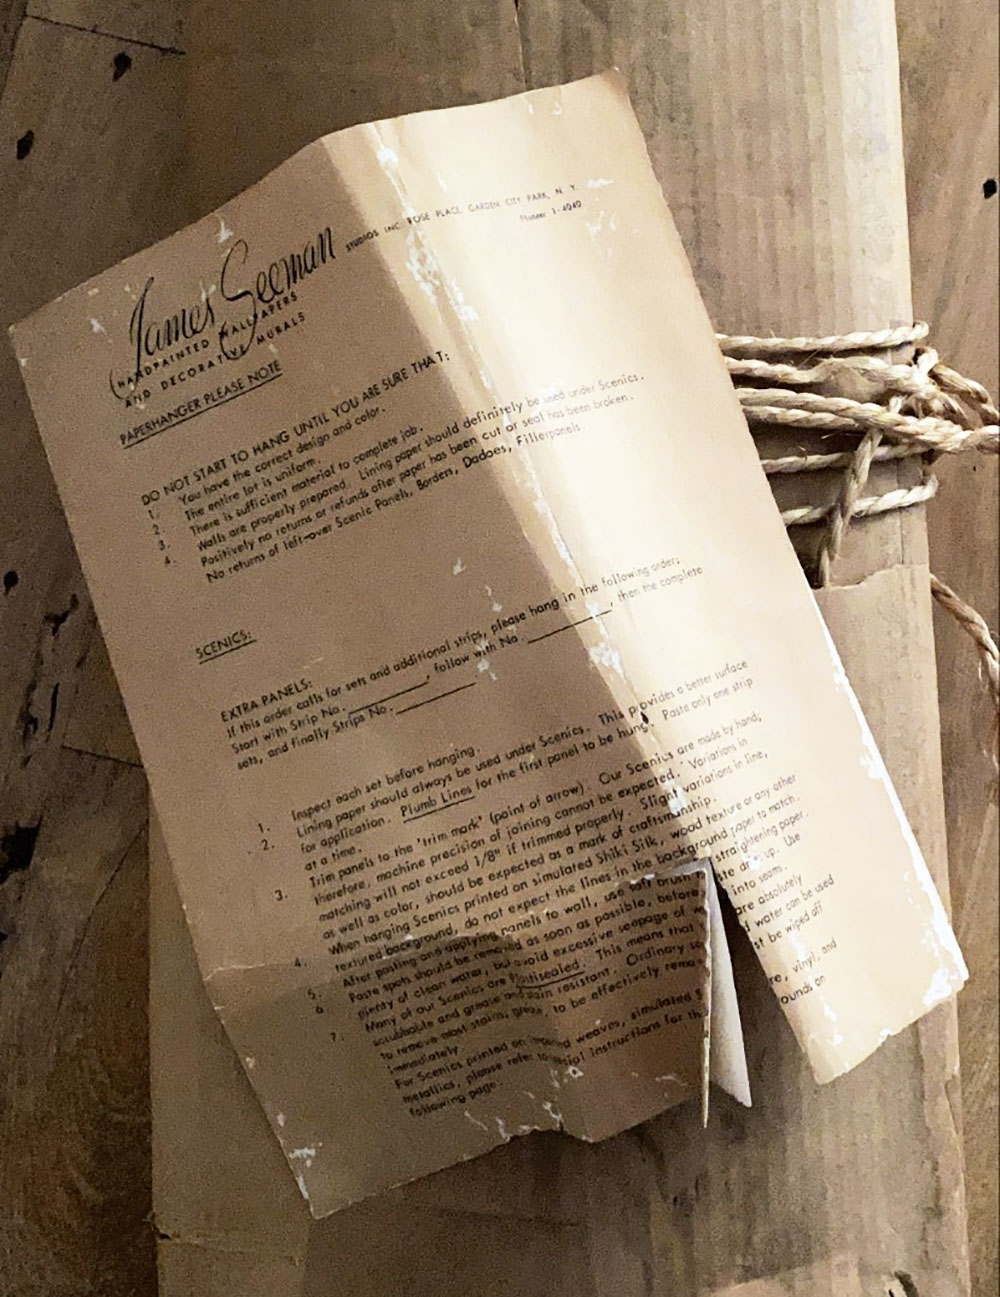 James Seeman
STUDIOS INC. ROSE PLACE, GARDEN CITY PARK, N. Y.
PIoneer 1-4040
HANDPAINTED WALLPAPERS
AND DECORATIVE MURALS
PAPERHANGER PLEASE NOTE
DO NOT START TO HANG UNTIL YOU ARE SURE THAT:
1. You have the correct design and color.
2. The entire lot is uniform.
3. There is sufficient material to complete job.
4. Walls are properly prepared. Lining paper should definitely be used under Scenics.
Positively no returns or refunds after paper has been cut or seal has been broken.
No returns of left-over Scenic Panels, Borders, Dadoes, Fillerpanels.
SCENICS:
EXTRA PANELS:
If this order calls for sets and additional strips, please hang in the following order;
Start with Strip No. , follow with No. , then the complete
sets, and finally Strips No.
1. Inspect each set before hanging.
2. Lining paper should always be used under Scenics. This provides a better surface
for application. Plumb Lines for the first panel to be hung. Paste only one strip
at a time.
3. Trim panels to the "trim mark" (point of arrow). Our Scenics are made by hand;
therefore, machine precision of joining cannot be expected. Variations in
matching will not exceed 1/8" if trimmed properly. Slight variations in line,
as well as color, should be expected as a mark of craftsmanship.
4. When hanging Scenics printed on simulated Shiki Silk, wood texture or any other
textured background, do not expect the lines in the background paper to match.
5. After pasting and applying panels to wall, use soft brush straightening paper.
6. Paste spots should be removed as soon as possible, before paste dries up. Use
plenty of clean water, but avoid excessive seepage of into seams.
7. Many of our Scenics are Plastisealed. This means that are absolutely
scrubbable and grease and stain resistant. Ordinary water can be used
to remove most stains; grease, to be effectively must be wiped off
immediately.
For Scenics printed on weaves, simulated vinyl, and
metallics, please refer to special instructions for on
following page.